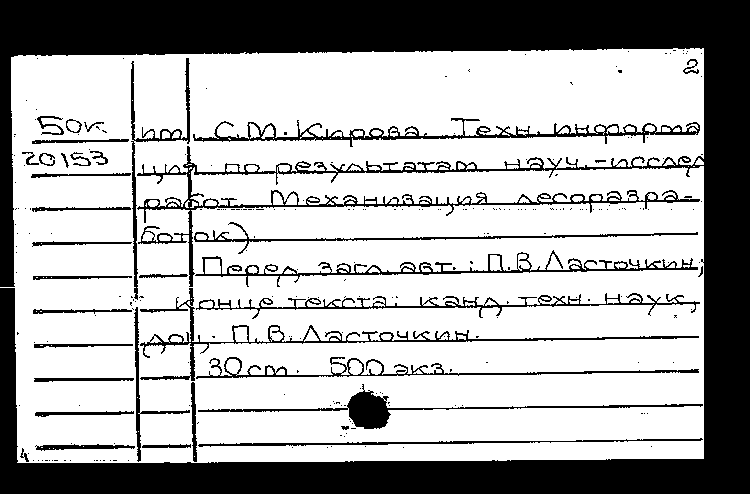 2
50к им. С.М. Кирова. Техн. информа
20153 ция по результатам науч.-исслед
работ. Механизация лесоразра-
боток)
Перед загл. авт.: П.В. Ласточкин;
конце текста: канд. техн. наук,
доц. П.В. Ласточкин.
30 см. 500 экз.
4